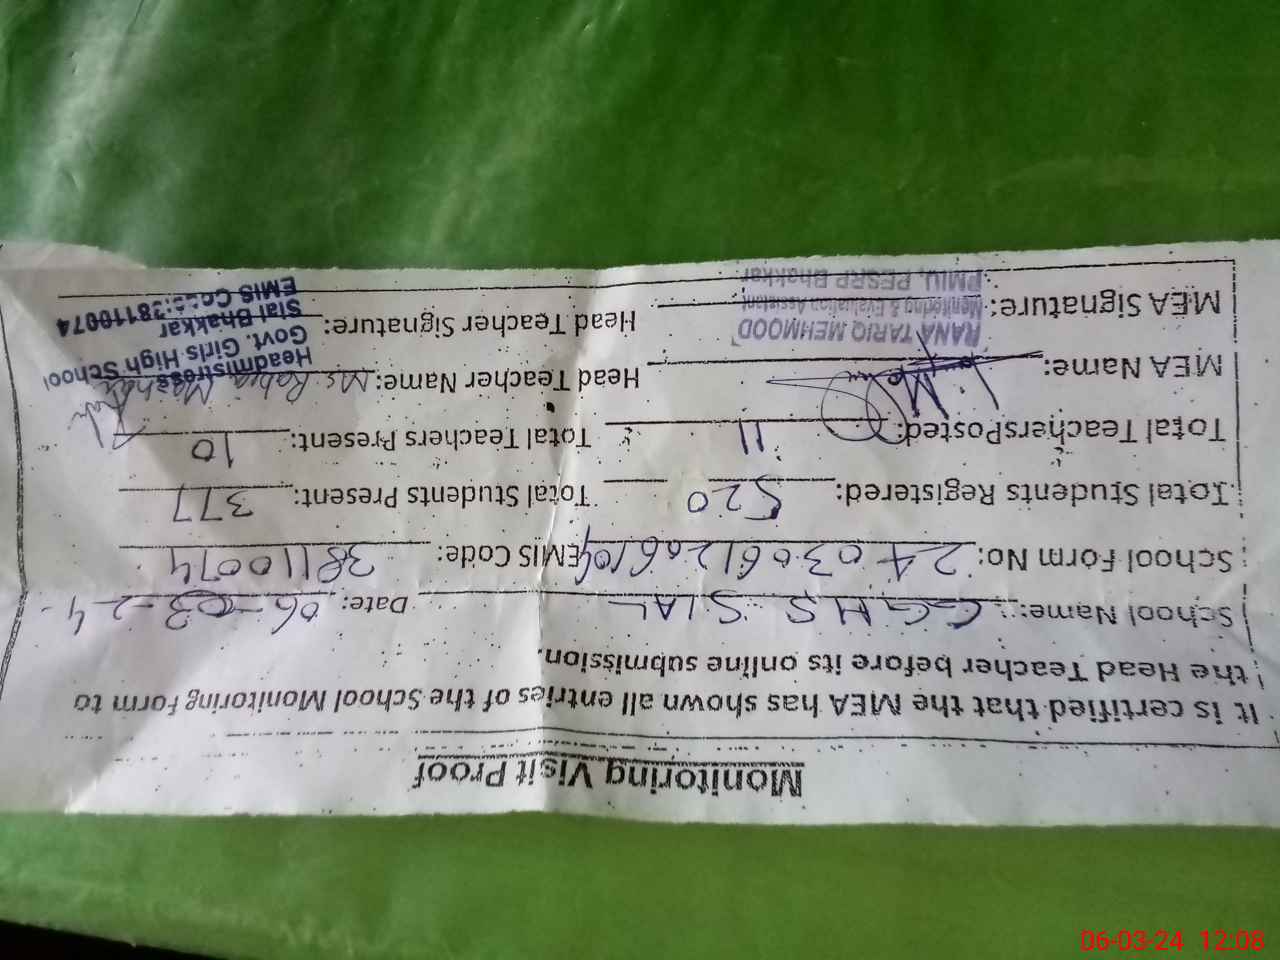 Monitoring Visit Proof
It is certified that the MEA has shown all entries of the School Monitoring Form to
the Head Teacher before its online submission.
School Name: GGHS SIAL Date: 06-03-24
School Form No: EMIS Code: 38110074
Total Students Registered: 520 Total Students Present: 377
Total TeachersPosted: 11 Total Teachers Present: 10
MEA Name: Head Teacher Name: Ms. Rabia
MEA Signature: Head Teacher Signature:
RANA TARIQ MEHMOOD
Monitoring & Evaluation Assistant
PMIU, PESRP Bhakkar
Headmistress
Govt. Girls High School
Sial Bhakkar
EMIS Code:38110074
06-03-24 12:08